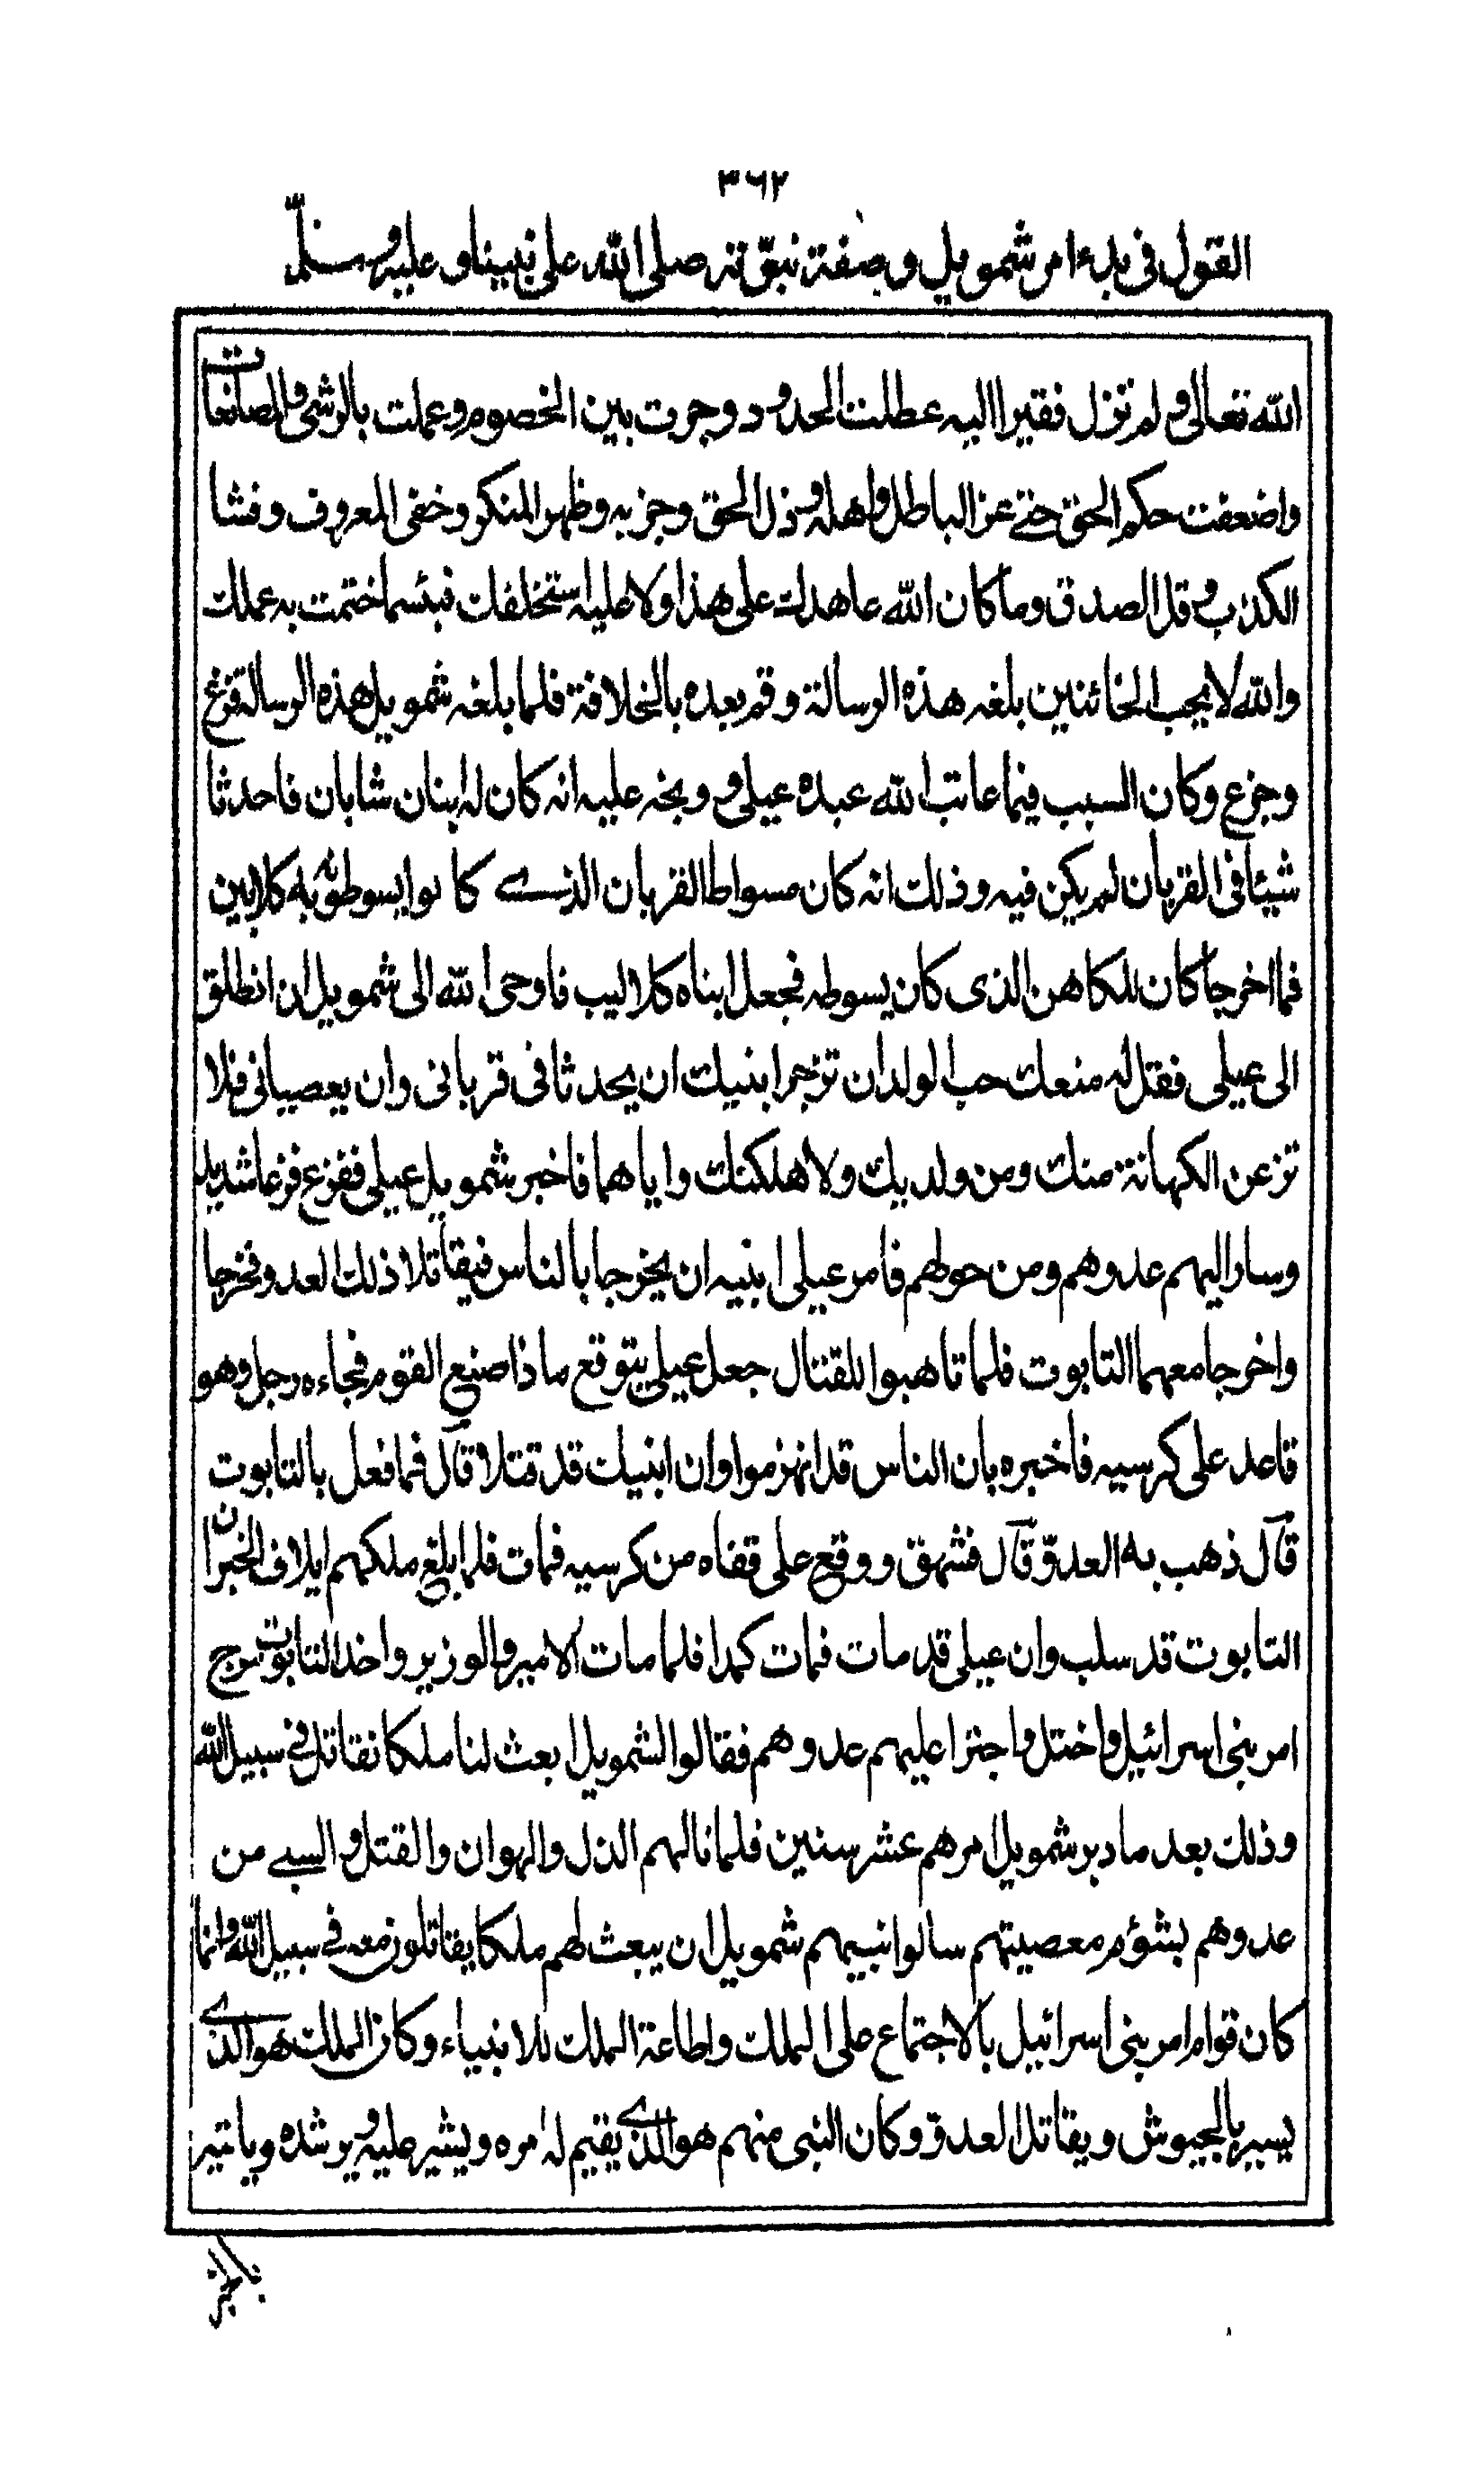 ٣٦٢
القول فى بدء امر شمويل وصفة نبوّته صلى الله على نبينا وعليه وسلّم
الله تعالى ولم تزل فقيرا اليه عطلت الحدود وجرت بين الخصوم وعملت بالرشى والمصانعات
واضعفت حكم الحق حتى عز الباطل واهله وذل الحق وحزبه وظهر المنكر وخفى المعروف وفشا
الكذب وقل الصدق وما كان الله عاهدك على هذا ولا عليه استخلفك فبئسما ختمت به عملك
والله لا يحب الخائنين بلغه هذه الرسالة وقم بعده بالخلافة فلما بلغه شمويل هذه الرسالة فزع
وجزع وكان السبب فيما عاتب الله عبده عيلى ووبخه عليه انه كان له ابنان شابان فاحدثا
شيئا فى القربان لم يكن فيه وذلك انه كان مسواط القربان الذے كانوا يسوطونه به كلابين
فما اخرجا كان للكاهن الذى كان يسوطه فجعل ابناه كلاليب فاوحى الله الى شمويل ان انطلق
الى عيلى فقل له منعك حب الولد ان تزجر ابنيك ان يحدثا فى قربانى وان يعصيانى فلا
نزعن الكهانة منك ومن ولديك ولاهلكنك واياهما فاخبر شمويل عيلى ففزع فزعا شديدا
وسار اليهم عدوهم ومن حولهم فامر عيلى ابنيه ان يخرجا بالناس فيقاتلا ذلك العدو فخرجا
واخرجا معهما التابوت فلما تاهبوا للقتال جعل عيلى يتوقع ماذا صنع القوم فجاءه رجل وهو
قاعد على كرسيه فاخبره بان الناس قد انهزموا وان ابنيك قد قتلا قال فما فعل بالتابوت
قال ذهب به العدوّ قال فشهق ووقع على قفاه من كرسيه فمات فلما بلغ ملكهم ايلاف الخبر ان
التابوت قد سلب وان عيلى قد مات فمات كمدا فلما مات الامير والوزير واخذ التابوت مرج
امر بنى اسرائيل واختل واجترا عليهم عدوهم فقالوا لشمويل ابعث لنا ملكا نقاتل فى سبيل الله
وذلك بعد ما دبر شمويل امرهم عشر سنين فلما نالهم الذل والهوان والقتل والسبے من
عدوهم بشؤم معصيتهم سالوا نبيهم شمويل ان يبعث لهم ملكا يقاتلون معه فے سبيل الله وانما
كان قوام امر بنى اسرائيل بالاجتماع على الملك واطاعة الملك للانبياء وكان الملك هو الذے
يسير بالجيوش ويقاتل العدوّ وكان النبى منهم هو الذے يقيم له امره ويشير عليه ويرشده وياتيه
بالخبر